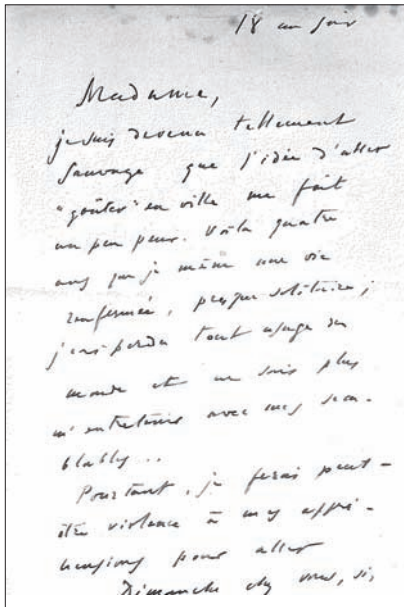 18 au soir
Madame,
je suis devenu tellement
sauvage que l'idée d'aller
"goûter" en ville me fait
un peu peur. Voilà quatre
ans que je mène une vie
renfermée, presque solitaire ;
j'ai perdu tout usage du
monde et ne sais plus
m'entretenir avec mes sem-
blables...
Pourtant, je ferais peut-
être violence à mes appré-
hensions pour aller
Dimanche chez vous, si,